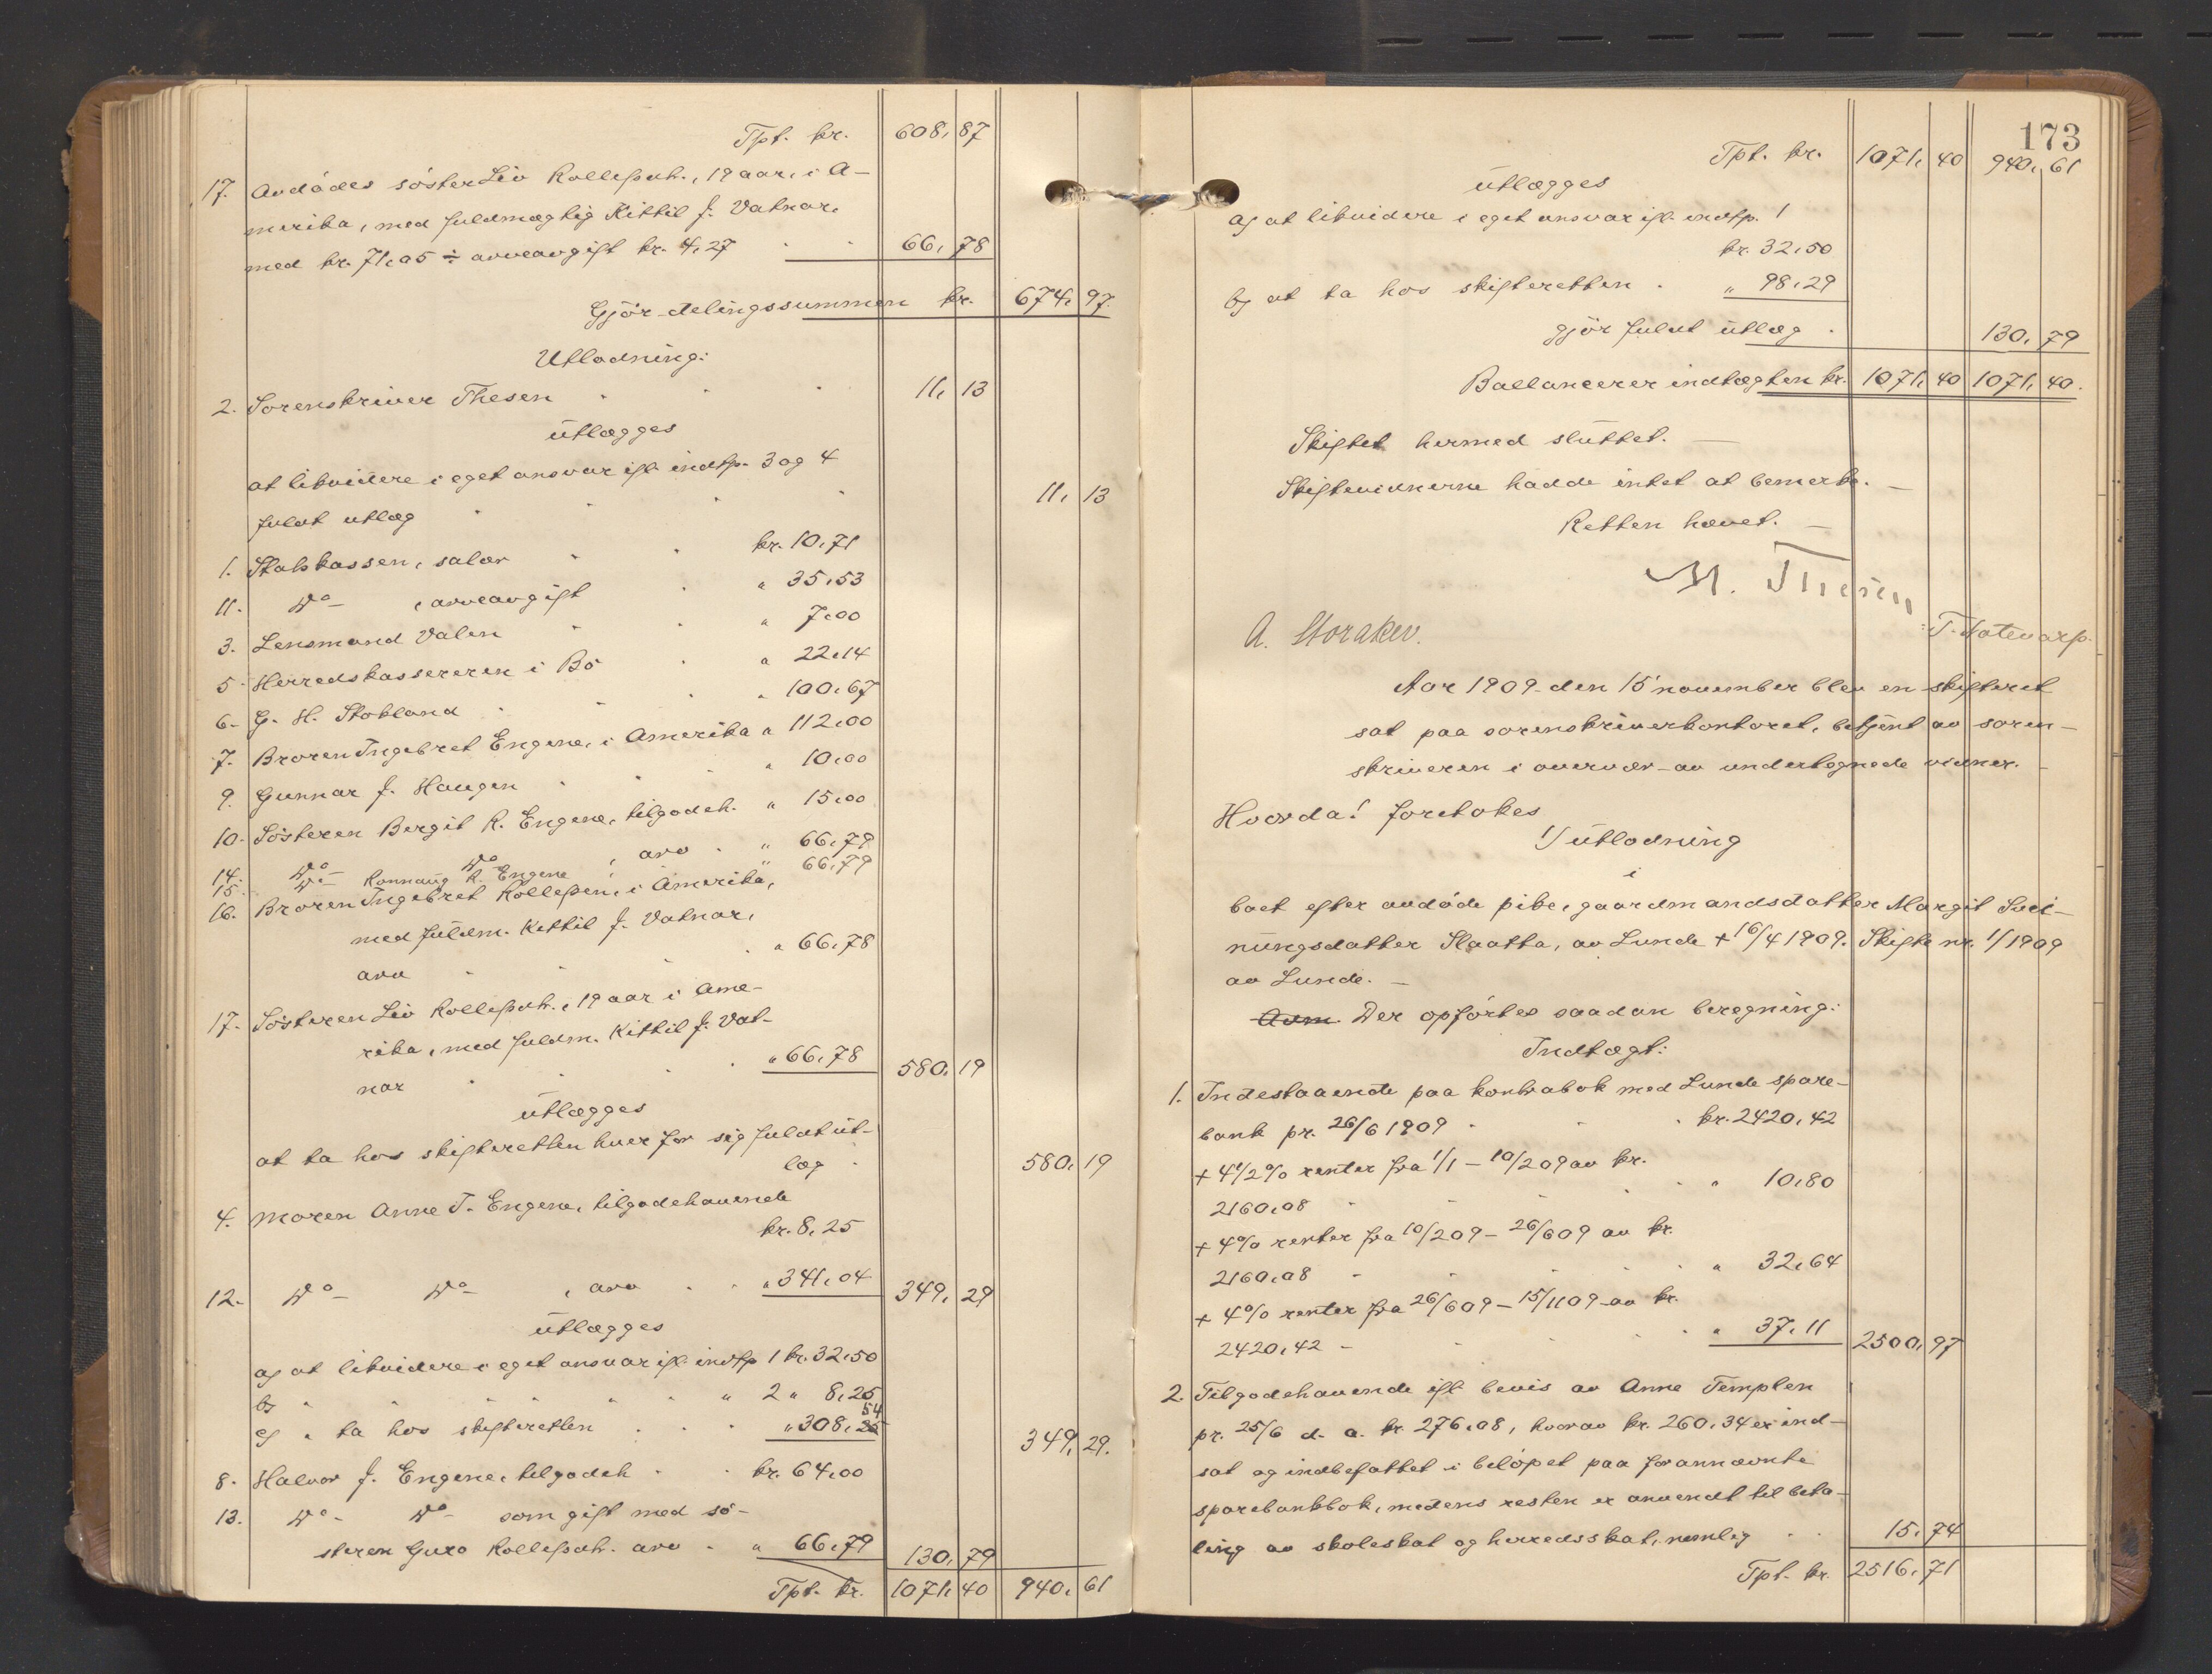 Tpt. kr. 608,87
17. Avdødes søster Liv Rollefsdtr., 19 aar, i A-
merika, med fuldmægtig Kittil J. Vatnar,
med kr. 71,05 ÷ arveavgift kr. 4,27 66,78
Gjør delingssummen kr. 674,97.
Utlodning:
2. Sorenskriver Thesen 11,13
utlægges
at likvidere i eget ansvar ifl. indtp. 3 og 4
fuldt utlæg 11,13
1. Statskassen, salær kr. 10,71
11. Do , arveavgift " 35,53
3. Lensmand Valen " 7,00
5. Herredskassereren i Bø " 22,14
6. G. H. Stokland " 100,67
7. Broren Ingebret Engene, i Amerika " 112,00
9. Gunnar J. Haugen " 10,00
10. Søsteren Bergit R. Engene, tilgodeh. " 15,00
14. Do Do , arv " 66,79
15. Do Ronnaug R. Engene " 66,79
16. Broren Ingebret Rollefsen, i Amerika,
med fuldm. Kittil J. Vatnar,
arv " 66,78
17. Søsteren Liv Rollefsdtr., 19 aar i Ame-
rika, med fuldm. Kittil J. Vat-
nar " 66,78 580,19
utlægges
at ta hos skifteretten hver for sig fuldt ut-
læg 580,19
4. Moren Anne T. Engene, tilgodehavende
kr. 8,25
12. Do Do , arv " 341,04 349,29
utlægges
a) at likvidere i eget ansvar ifl. indtp 1 kr. 32,50
b) " " " " " " " 2 " 8,25
c) " ta hos skifteretten " 308,54 349,29.
8. Halvor J. Engene, tilgodeh kr. 64,00
13. Do Do som gift med sø-
steren Guro Rollefsdtr. arv " 66,79 130,79
Tpt. kr. 1071,40 940,61
173
Tpt. kr. 1071,40 940,61
utlægges
a) at likvidere i eget ansvar ifl. indtp. 1
kr. 32,50
b) at ta hos skifteretten " 98,29
gjør fuldt utlæg 130,79
Ballancerer indtægten kr. 1071,40 1071,40.
Skiftet hermed sluttet.
Skiftevidnerne hadde intet at bemerke.
Retten hævet.
M. Thesen
A. Storaker.
Aar 1909 den 15 november blev en skifteret
sat paa sorenskriverkontoret, betjent av soren-
skriveren i overvær av undertegnede vidner.
Hvorda! foretokes
1/ utlodning
i
boet efter avdøde pike, gaardmandsdatter Margit Svei-
nungsdatter Slaatta, av Lunde + 16/4 1909. Skifte nr. 1/1909
av Lunde.
Der opførtes saadan beregning:
Indtægt:
1. Indestaaende paa kontrabok med Lunde spare-
bank pr. 26/6 1909 kr. 2420,42
+ 4 1/2 % renter fra 1/1 – 10/2 09 av kr.
2160,08 " 10,80
+ 4% renter fra 10/2 09 – 26/6 09 av kr.
2160,08 " 32,64
+ 4% renter fra 26/6 09 – 15/11 09 av kr.
2420,42 " 37,11 2500,97
2. Tilgodehavende ifl. bevis av Anne Templen
pr. 25/6 d. a. kr. 276,08, hvorav kr. 260,34 er ind-
sat og indbefattet i beløpet paa forannævnte
sparebankbok, medens resten er anvendt til beta-
ling av skoleskat og herredsskat, nemlig 15,74
Tpt. kr. 2516,71